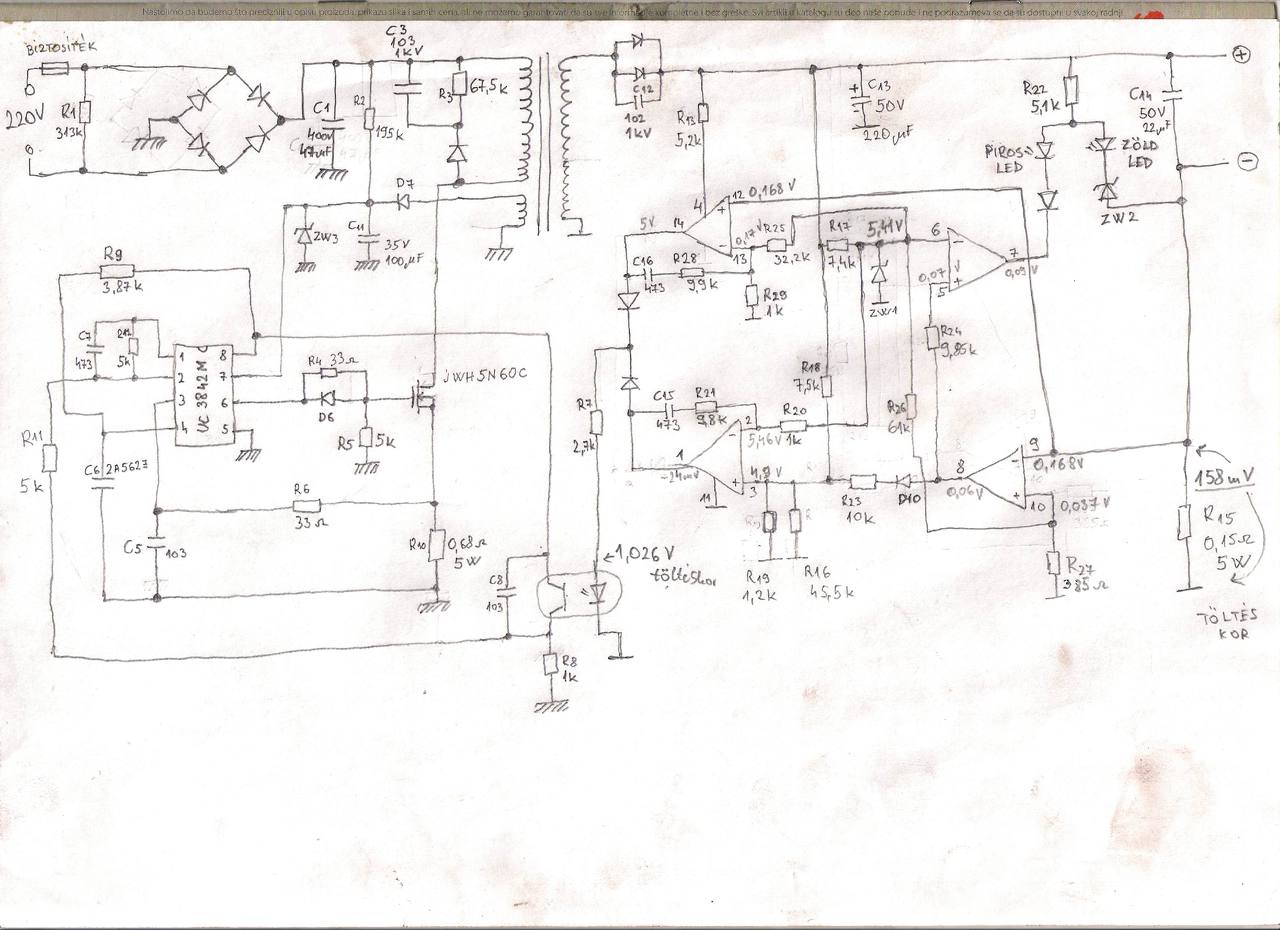 Nastojimo pa budemo što precizniji u opisu proizvoda, prikazu slika i samih cena, ali ne možemo garantovati da su sve informacije kompletne i bez greške. Svi artikli u katalogu su deo naše ponude i ne podrazumeva se da su dostupni u svakoj radnji.
BIZTOSÍTÉK
220V
R1
313k
C1
400V
47µF
R2
195k
C3
103
1kV
R3
67,5k
C12
102
1kV
R13
5,2k
C13
50V
220µF
R22
5,1k
C14
50V
22µF
+
−
PIROS
LED
ZÖLD
LED
ZW2
D7
ZW3
C11
35V
100µF
R9
3,87k
C7
473
R12
5k
UC 3842M
1
2
3
4
8
7
6
5
R4 33Ω
D6
R5
5k
JWH5N60C
R11
5k
C6 2A562J
R6
33Ω
C5
103
R10
0,68Ω
5W
C8
103
R8
1k
1,026V
töltéskor
R7
2,7k
5V
14
4
+
12
0,168V
−
13
0,17V
R25
32,2k
C16
473
R28
9,9k
R29
1k
R17
7,4k
5,41V
ZW1
6
−
7
0,09V
0,07V
+
5
R24
9,85k
R18
7,5k
R26
61k
C15
473
R21
9,8k
2
−
5,46V
R20
1k
1
-24mV
11
+
3
4,9V
R23
10k
D10
8
0,06V
9
−
0,168V
+
10
0,037V
R19
1,2k
R16
45,5k
R27
385Ω
158mV
R15
0,15Ω
5W
TÖLTÉS
KOR